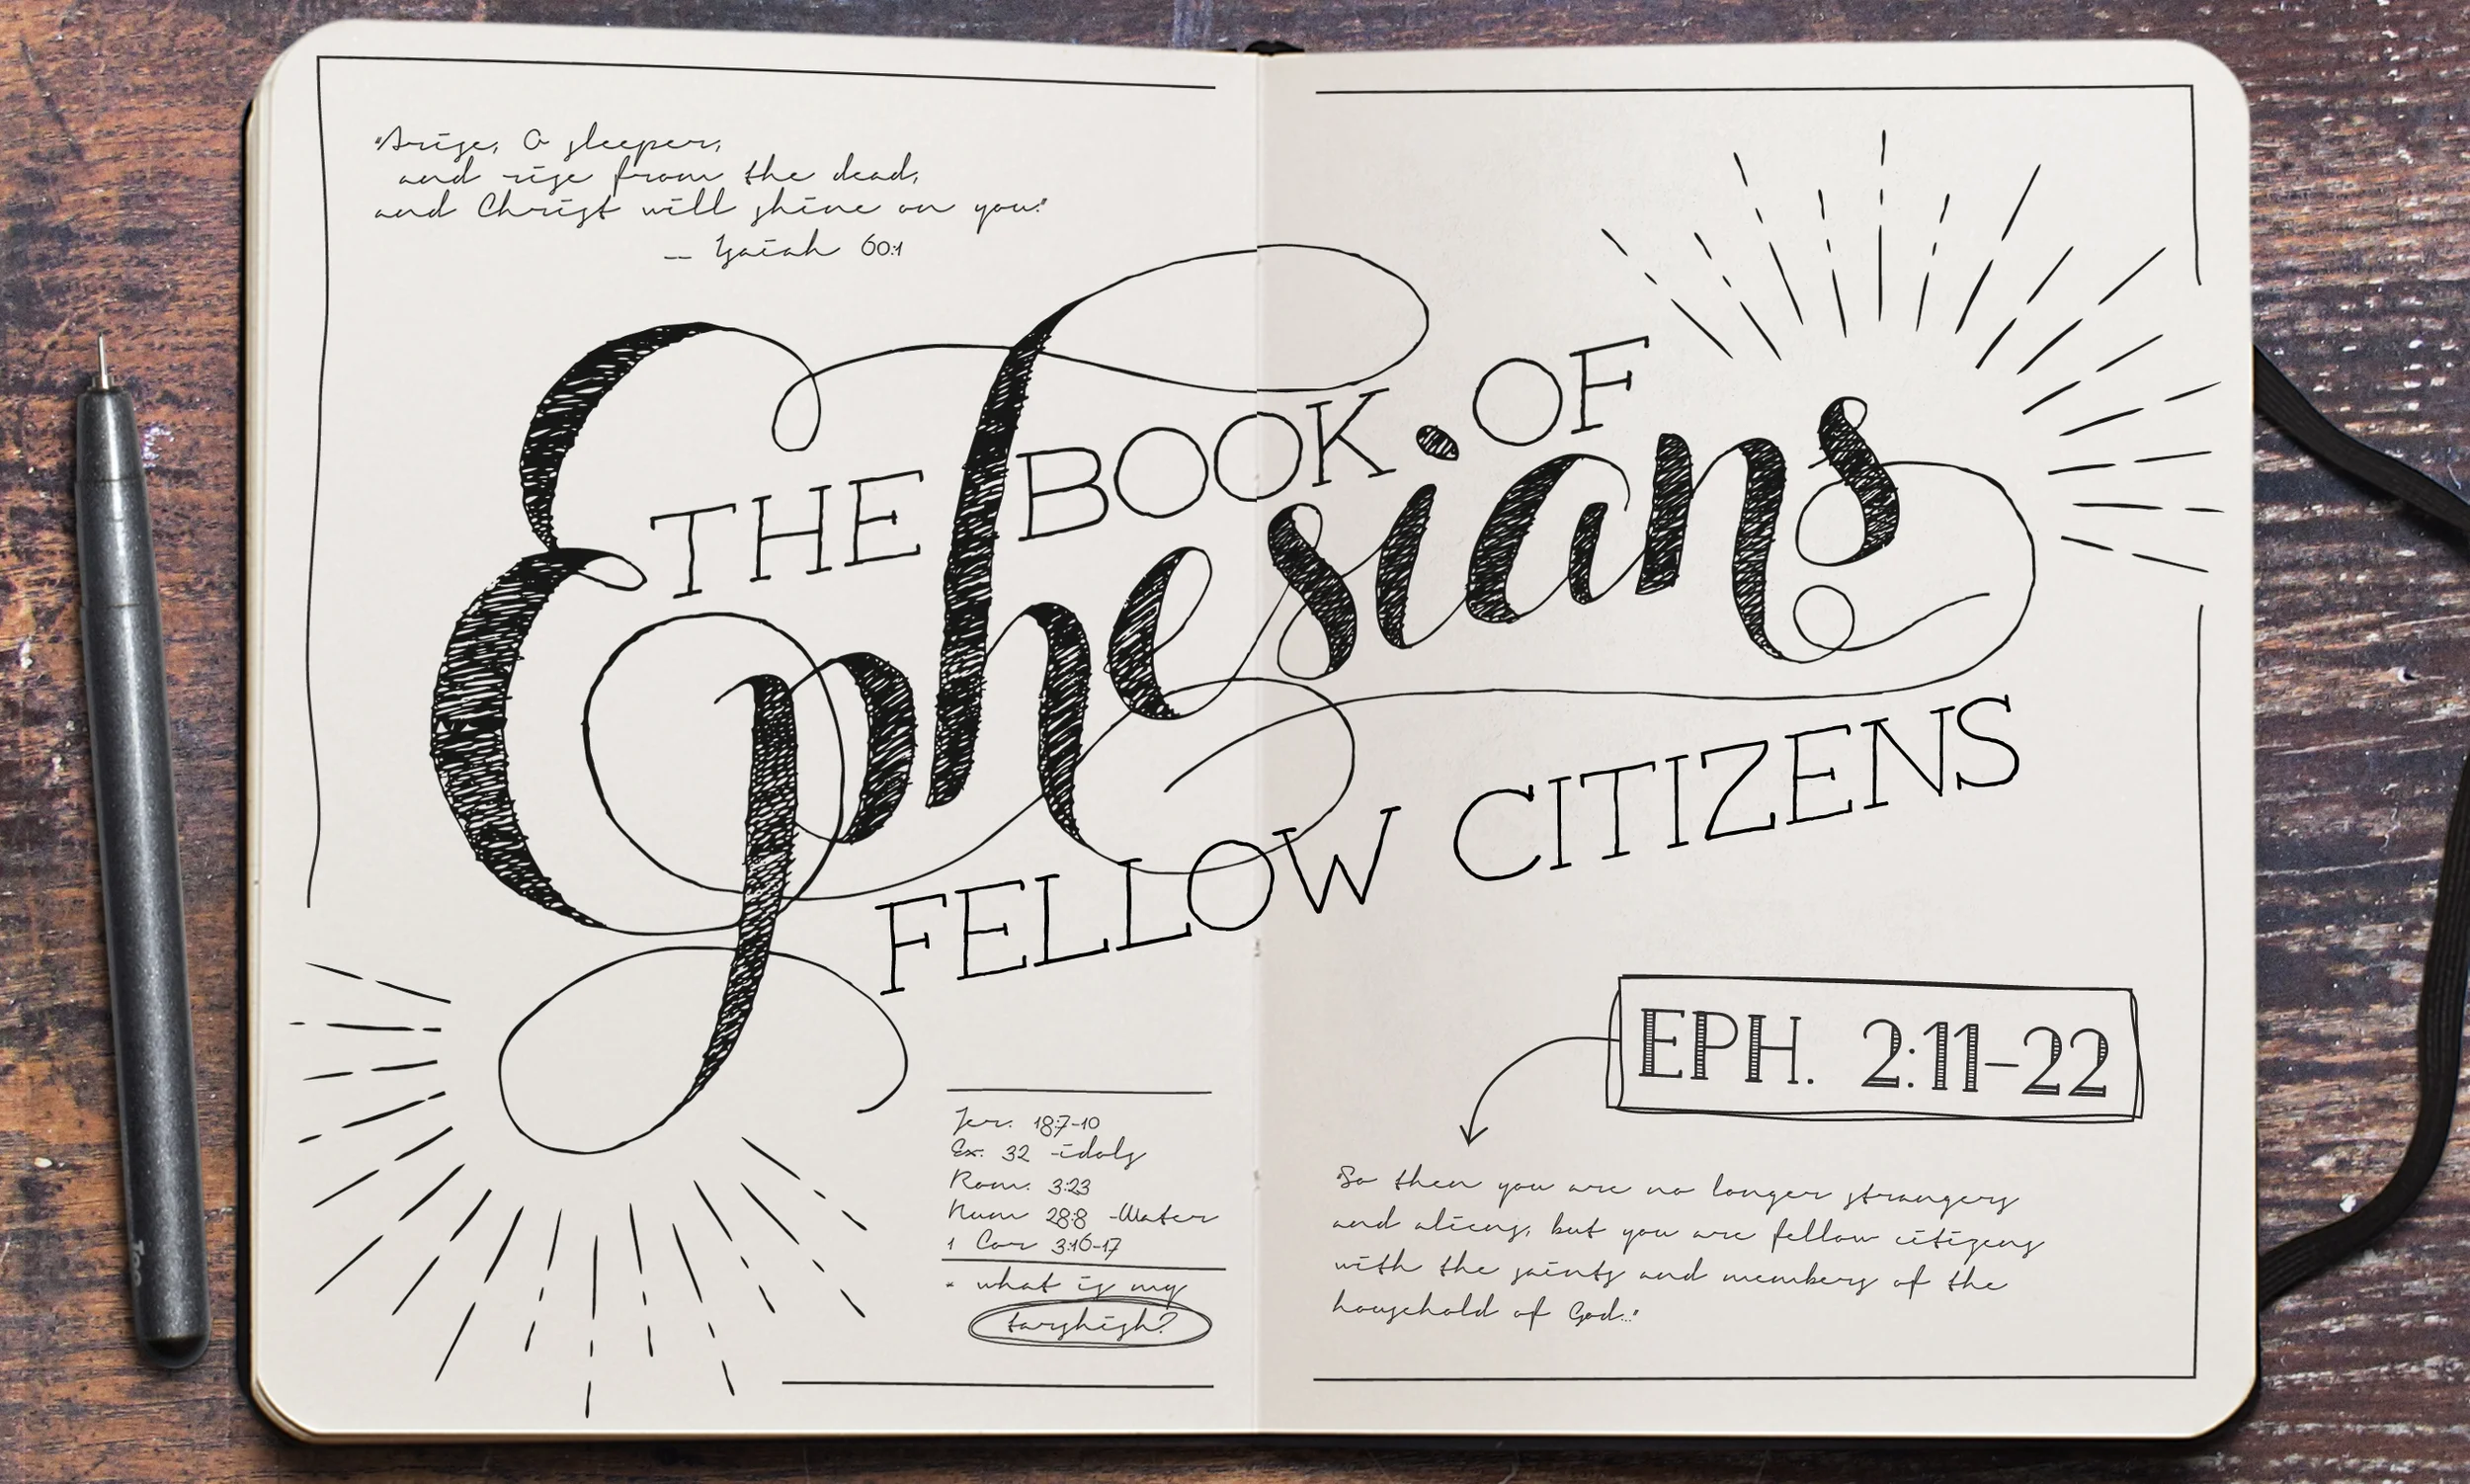 "Arise, O sleeper,
and rise from the dead,
and Christ will shine on you."
-- Isaiah 60:1
THE BOOK OF
Ephesians
FELLOW CITIZENS
Jer. 18:7-10
Ex. 32 -idols
Rom. 3:23
Num 28:8 -Water
1 Cor 3:16-17
* what is my
tarshish?
EPH. 2:11-22
"So then you are no longer strangers
and aliens, but you are fellow citizens
with the saints and members of the
household of God..."